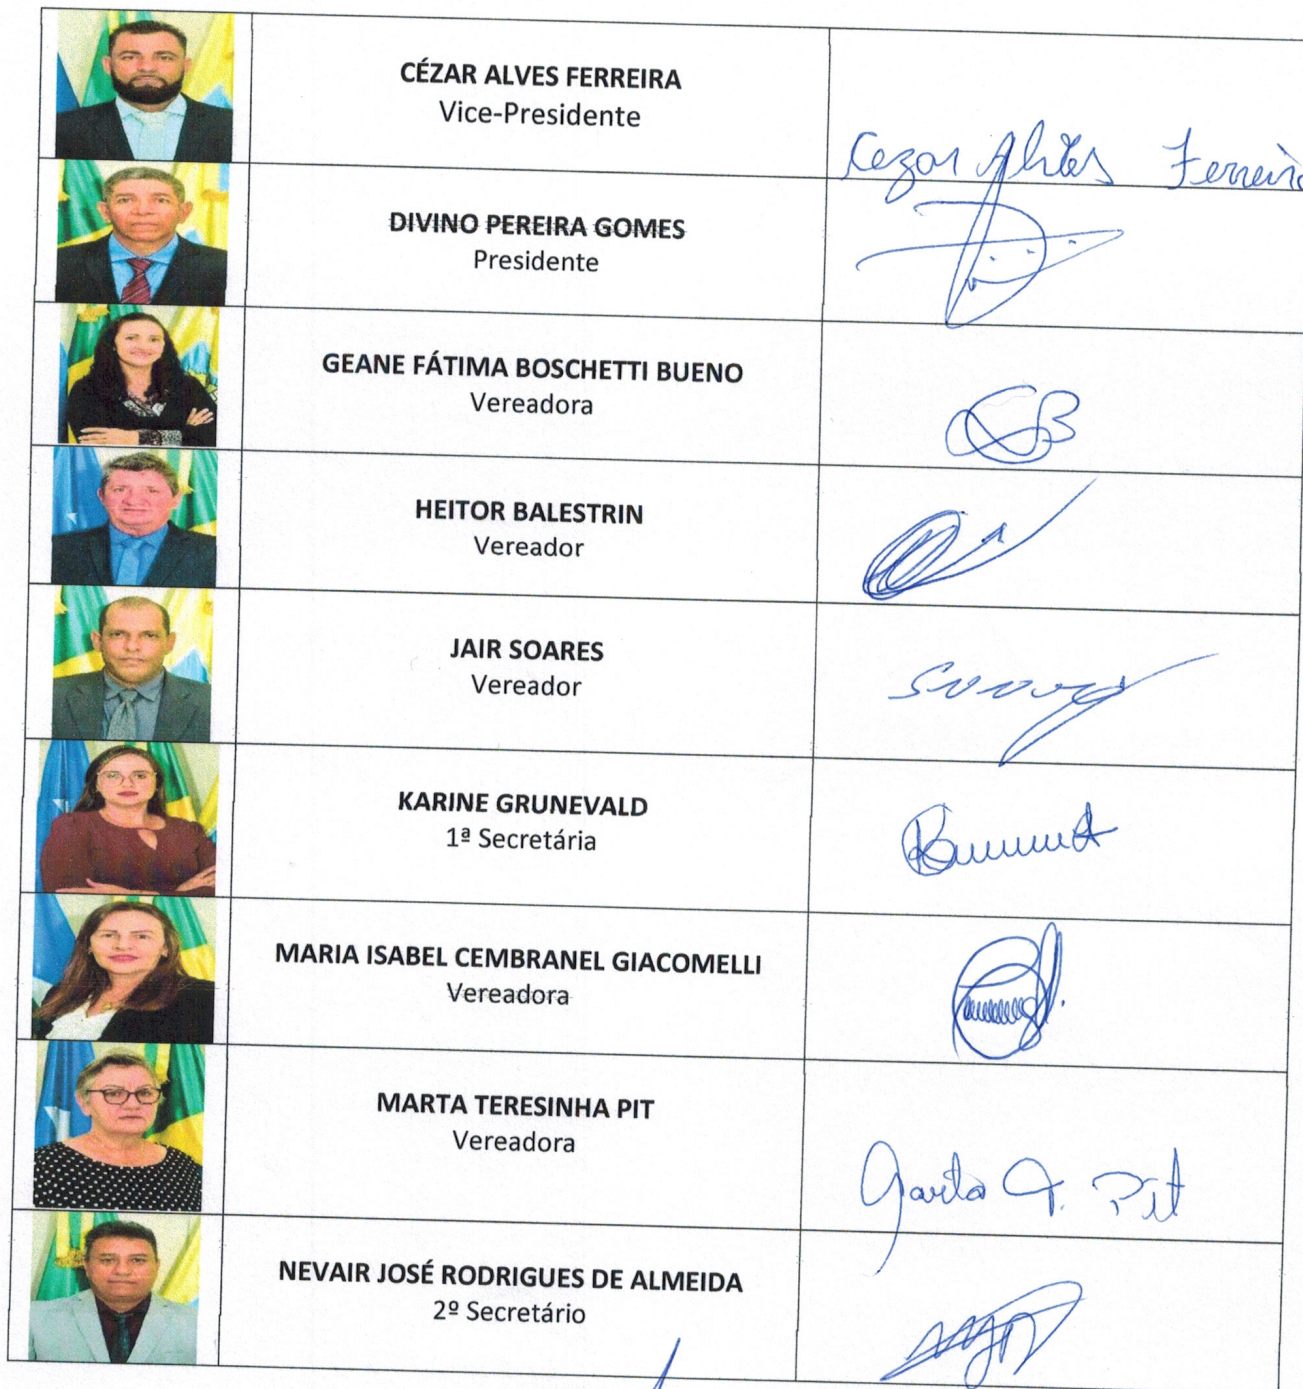 CÉZAR ALVES FERREIRA
Vice-Presidente
Cezar Alves Ferreira
DIVINO PEREIRA GOMES
Presidente
GEANE FÁTIMA BOSCHETTI BUENO
Vereadora
HEITOR BALESTRIN
Vereador
JAIR SOARES
Vereador
KARINE GRUNEVALD
1ª Secretária
MARIA ISABEL CEMBRANEL GIACOMELLI
Vereadora
MARTA TERESINHA PIT
Vereadora
Marta T. Pit
NEVAIR JOSÉ RODRIGUES DE ALMEIDA
2º Secretário